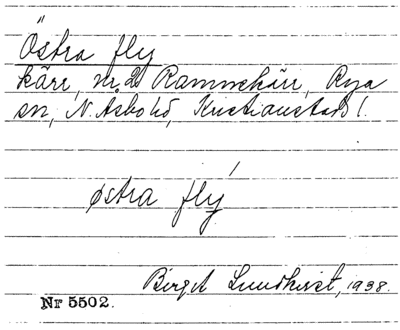 Östra fly
kärr, n. 2 Rammekärr, Rya
sn, N. Åsbo hd, Kristianstads l.
østra flý
Birgit Lundkvist, 1938.
Nr 5502.